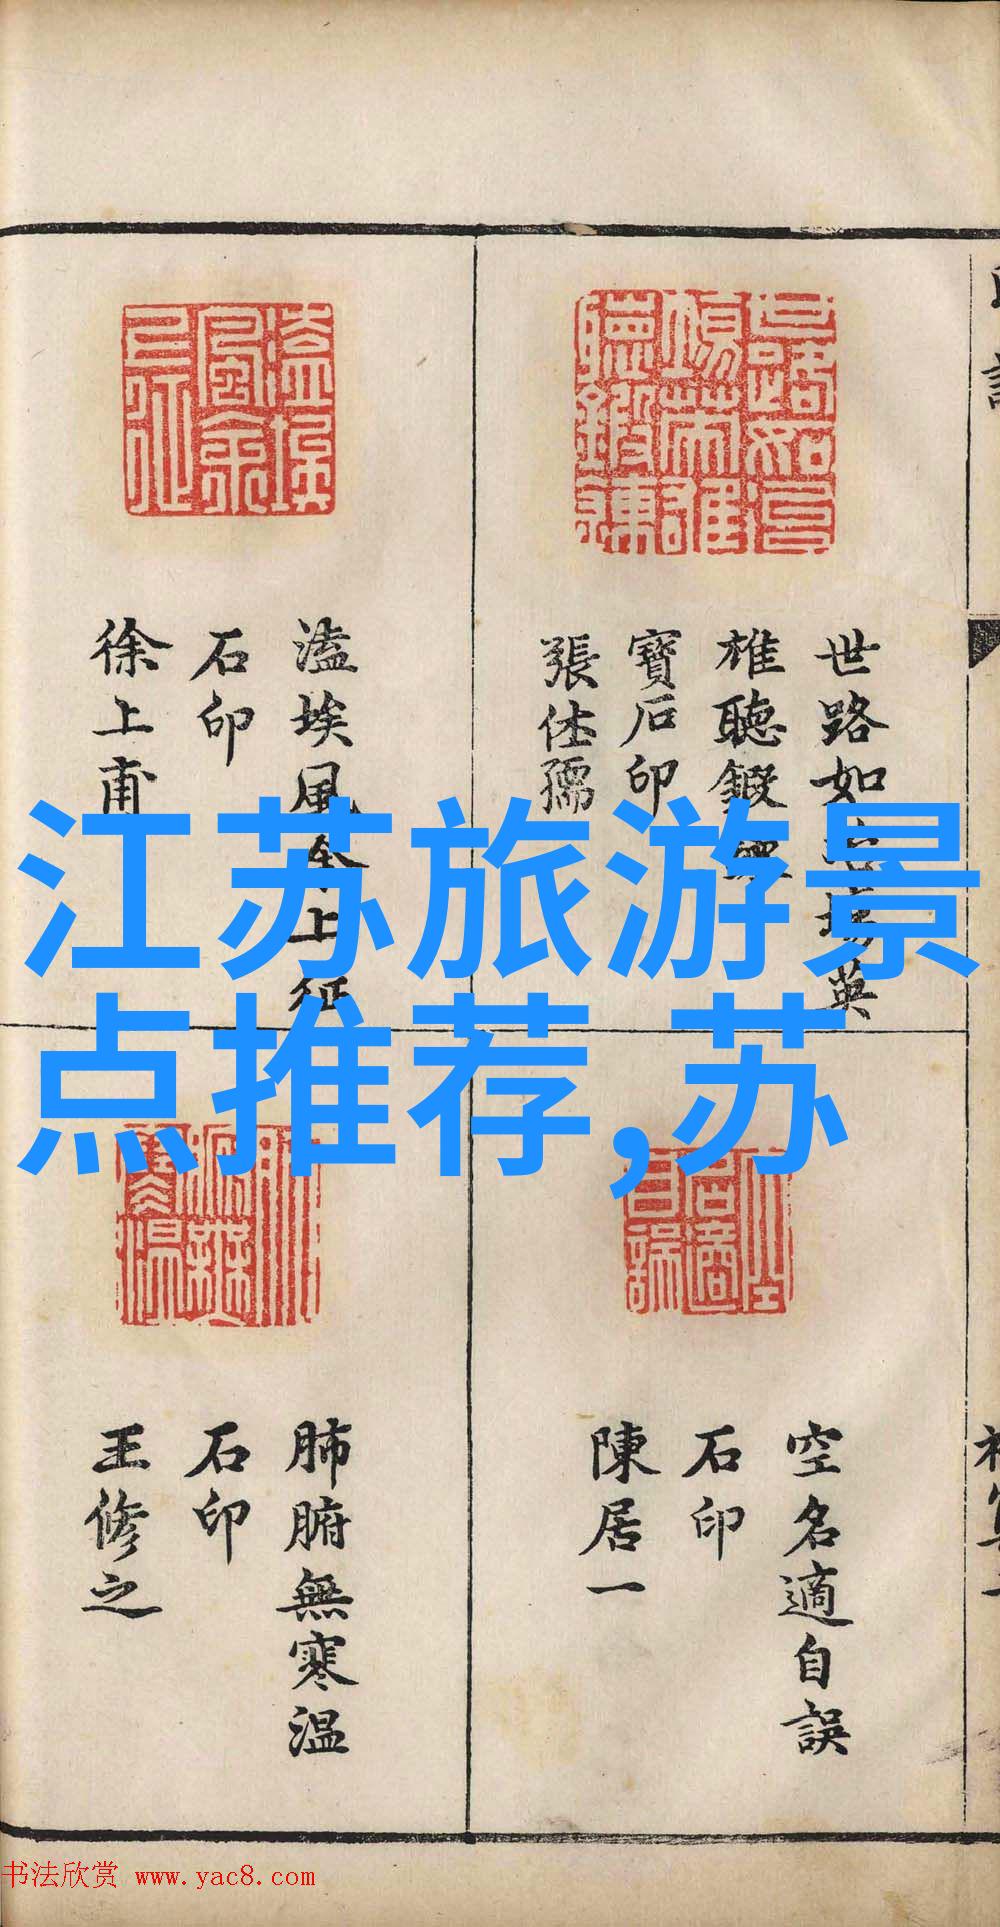 江苏旅游景
点推荐,苏
世路如
場英
雄聽鍛
寶石印
張仕孺
溘埃風余上征
石印
徐上甫
空名適自誤
石印
陳居一
肺腑無寒溫
石印
王修之
书法欣赏 www.yac8.com